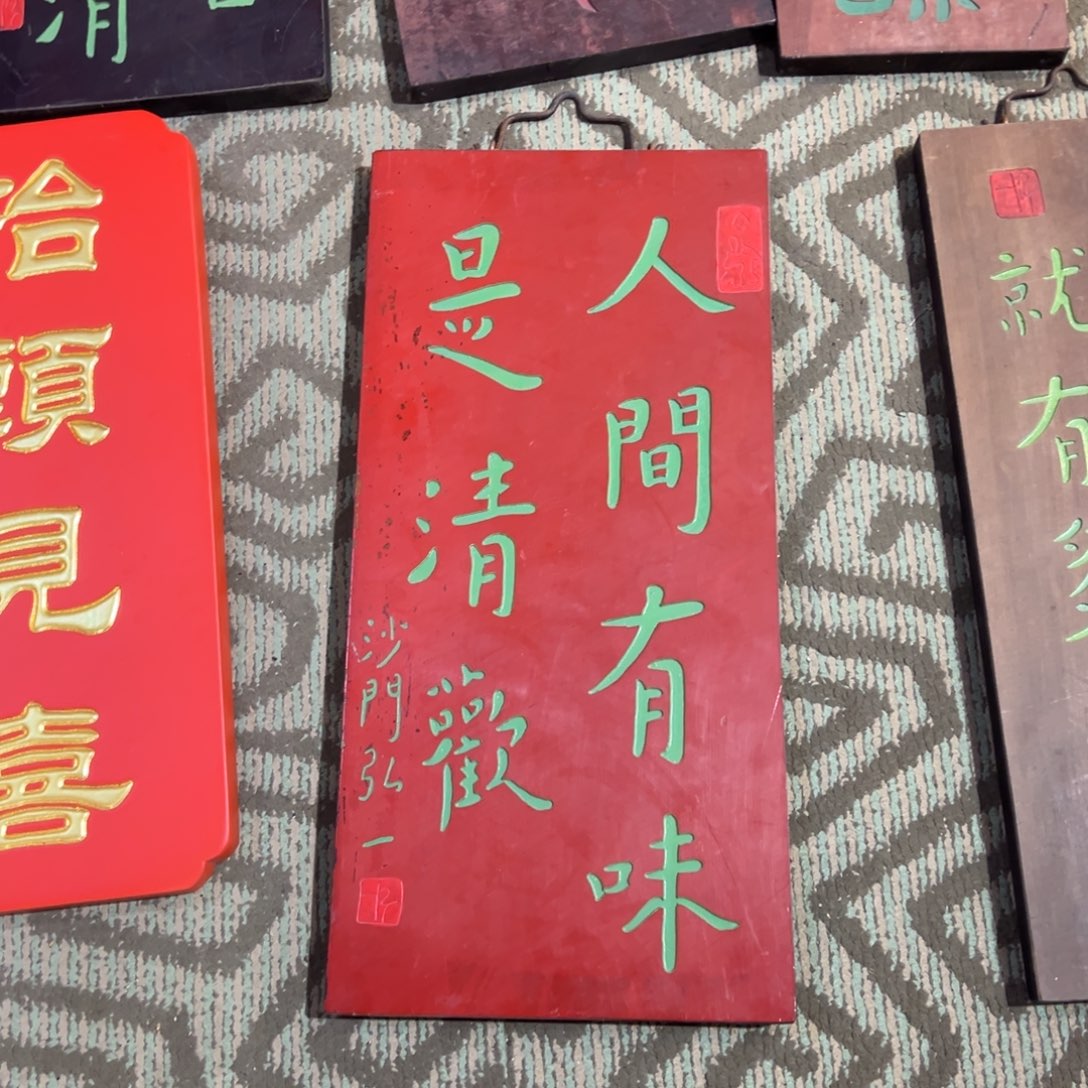 人間有味
是清歡
沙門弘一
抬頭見喜
就有多
清
味